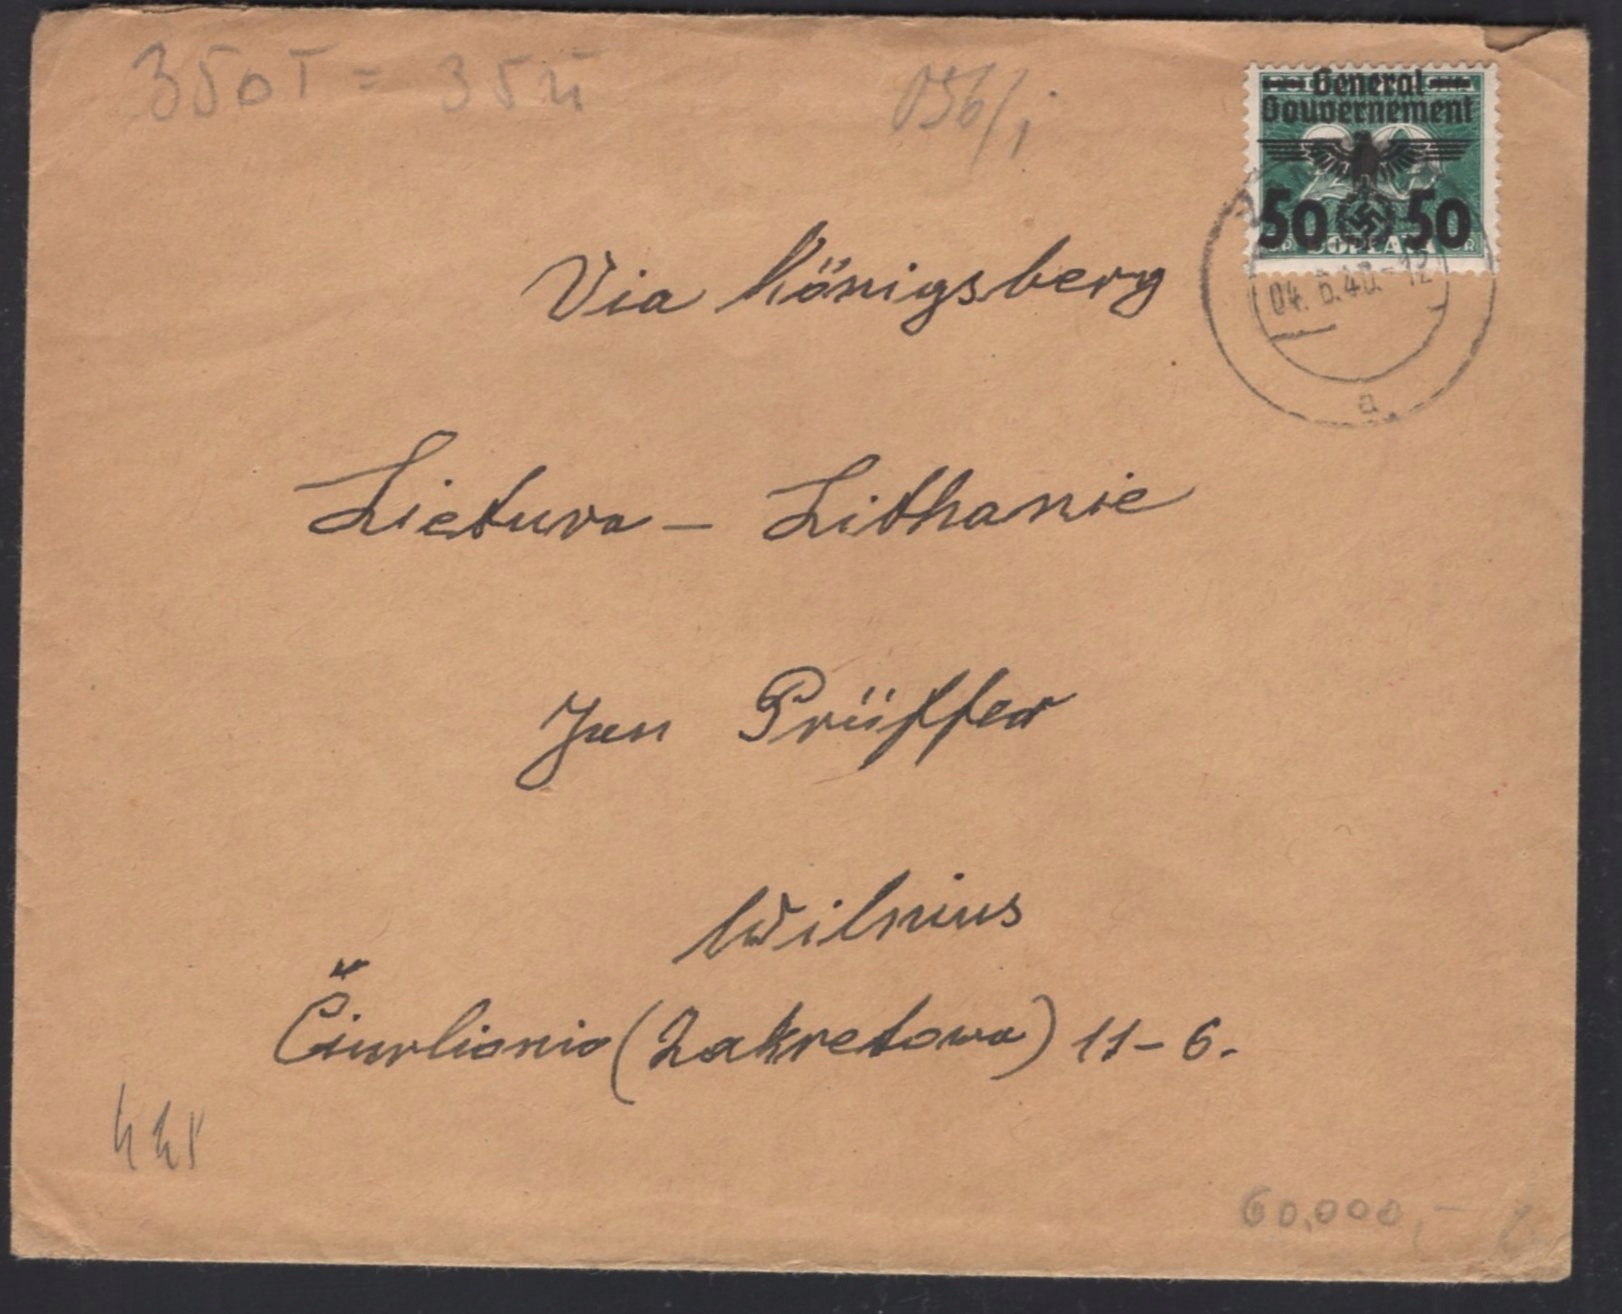 350T = 35
056/i
General
Gouvernement
50 50
DOPŁATA
04. 6. 40. - 12
a
Via Königsberg
Lietuva - Lithanie
Jan Prüffer
Wilnius
Čiurlionio (Zakretowa) 11-6.
60.000,-